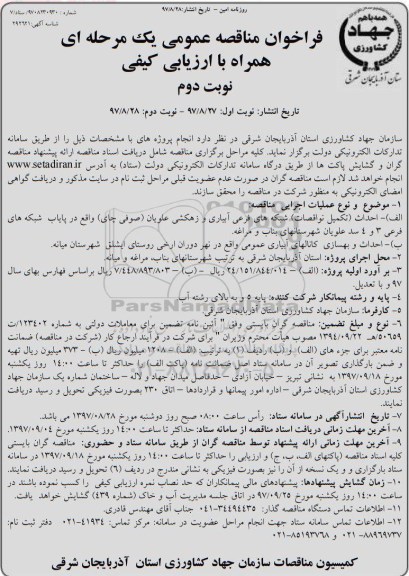 روزنامه امین - تاریخ انتشار: ۹۷/۸/۲۸
شناسه آگهی: ۲۹۲۶۲۱
همه با هم
جهاد
کشاورزی
استان آذربایجان شرقی
فراخوان مناقصه عمومی یک مرحله ای
همراه با ارزیابی کیفی
نوبت دوم
تاریخ انتشار: نوبت اول: ۹۷/۸/۲۷ - نوبت دوم: ۹۷/۸/۲۸
سازمان جهاد کشاورزی استان آذربایجان شرقی در نظر دارد انجام پروژه های با مشخصات ذیل را از طریق سامانه
تدارکات الکترونیکی دولت برگزار نماید. کلیه مراحل برگزاری مناقصه شامل دریافت اسناد مناقصه ارائه پیشنهاد مناقصه
گران و گشایش پاکت ها از طریق درگاه سامانه تدارکات الکترونیکی دولت (ستاد) به آدرس www.setadiran.ir
انجام خواهد شد لازم است مناقصه گران در صورت عدم عضویت قبلی مراحل ثبت نام در سایت مذکور و دریافت گواهی
امضای الکترونیکی به منظور شرکت در مناقصه را محقق سازند.
۱- موضوع و نوع عملیات اجرایی مناقصه:
الف)- احداث (تکمیل نواقصات) شبکه های فرعی آبیاری و زهکشی علویان (صوفی چای) واقع در پایاب شبکه های
فرعی ۳ و ۴ سد علویان شهرستانهای بناب و مراغه.
ب)- احداث و بهسازی کانالهای آبیاری عمومی واقع در نهر دوران ارخی روستای ایشلق شهرستان میانه.
۲- محل اجرای پروژه: استان آذربایجان شرقی به ترتیب شهرستانهای بناب، مراغه و میانه.
۳- بر آورد اولیه پروژه: (الف) – ۲۴/۱۵۱/۸۴۴/۰۱۴ ریال – (ب) – ۷/۴۴۸/۸۹۳/۸۰۳ ریال براساس فهارس بهای سال
۹۷ و با تعدیل.
۴- پایه و رشته پیمانکار شرکت کننده: پایه ۵ و به بالای رشته آب
۵- کارفرما: سازمان جهاد کشاورزی استان آذربایجان شرقی
۶- نوع و مبلغ تضمین: مناقصه گران بایستی وفق " آئین نامه تضمین برای معاملات دولتی به شماره ۱۲۳۴۰۲/ت
۵۰۶۵۹هـ مورخ ۱۳۹۴/۰۹/۲۲ مصوب هیأت محترم وزیران " برای شرکت در فرآیند ارجاع کار (شرکت در مناقصه) ضمانت
نامه معتبر برای جزء های (الف) و (ب) ردیف (۱) به ترتیب (الف) – ۱۲۰۸ میلیون ریال (ب) – ۳۷۳ میلیون ریال تهیه
و ضمن بارگذاری تصویر آن در سامانه ستاد اصل ضمانت نامه (پاکت الف) را حداکثر تا ساعت ۱۴:۰۰ روز یکشنبه
مورخ ۱۳۹۷/۰۹/۱۸ به نشانی تبریز – خیابان آزادی – حدفاصل میدان جهاد و لاله – ساختمان شماره یک سازمان جهاد
کشاورزی استان آذربایجان شرقی – اداره امور پیمانها و قراردادها – اتاق ۲۳۰ بصورت فیزیکی تحویل و رسید دریافت
نمایند.
۷- تاریخ انتشارآگهی در سامانه ستاد: رأس ساعت ۰۸:۰۰ صبح روز دوشنبه مورخ ۱۳۹۷/۰۸/۲۸ می باشد.
۸- آخرین مهلت زمانی دریافت اسناد مناقصه از سامانه ستاد: حداکثر تا ساعت ۱۴:۰۰ روز یکشنبه مورخ ۱۳۹۷/۰۹/۰۴.
۹- آخرین مهلت زمانی ارائه پیشنهاد توسط مناقصه گران از طریق سامانه ستاد و حضوری: مناقصه گران بایستی
کلیه اسناد مناقصه (پاکتهای الف، ب، ج) و ارزیابی را حداکثر تا ساعت ۱۴:۰۰ روز یکشنبه مورخ ۱۳۹۷/۰۹/۱۸ در سامانه
ستاد بارگزاری و و یک نسخه از آن را نیز بصورت فیزیکی به نشانی مندرج در ردیف (۶) تحویل و رسید دریافت نمایند.
۱۰- زمان گشایش پیشنهادها: پیشنهادهای مالی پیمانکاران که حد نصاب نمره ارزیابی کیفی را کسب نموده باشند در
ساعت ۱۴:۰۰ روز یکشنبه مورخ ۹۷/۰۹/۲۵ در اتاق جلسه مدیریت آب و خاک (شماره ۴۳۹) گشایش خواهد یافت.
۱۱- اطلاعات تماس دستگاه مناقصه گذار: ۳۴۴۹۴۴۳۵-۰۴۱ جناب آقای مهندس قادری.
۱۲- اطلاعات تماس سامانه ستاد جهت انجام مراحل عضویت در سامانه: مرکز تماس: ۴۱۹۳۴-۰۲۱ دفتر ثبت نام:
۸۸۹۶۹۷۳۷-۰۲۱ و ۸۵۱۹۳۷۶۸-۰۲۱
کمیسیون مناقصات سازمان جهاد کشاورزی استان آذربایجان شرقی